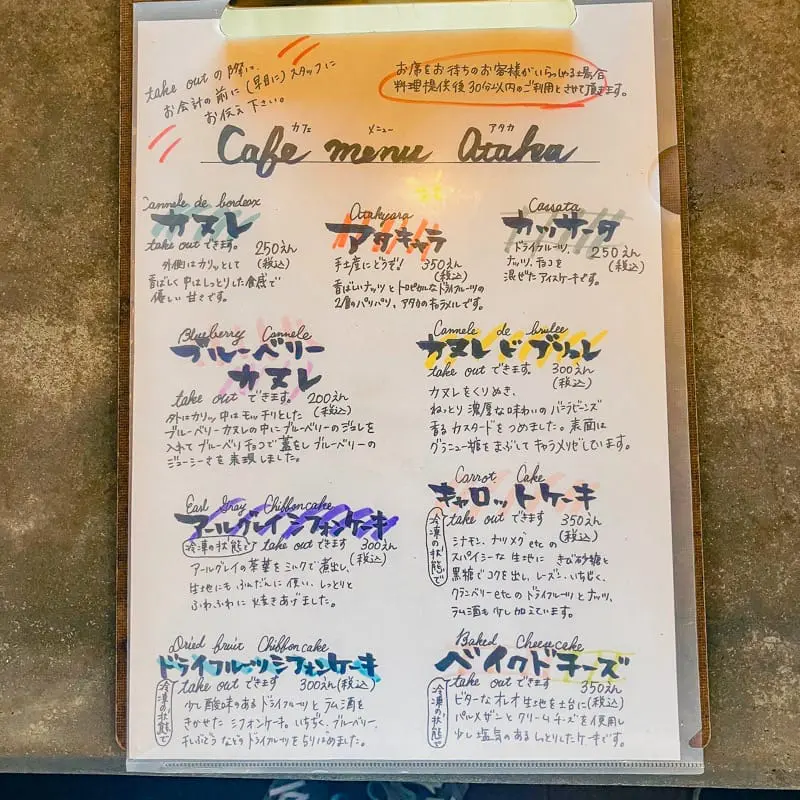 take outの際に、
お会計の前に(早目に)スタッフに
お伝え下さい。
お席をお待ちのお客様がいらっしゃる場合
料理提供後30分以内のご利用とさせて頂きます。
カフェ メニュー アタカ
Cafe menu Ataka
Cannele de bordeax
カヌレ
take outできます。 250えん
(税込)
外側はカリッとして
香ばしく中はしっとりした食感で
優しい甘さです。
Atakyara
アタキャラ
手土産にどうぞ! 350えん
(税込)
香ばしいナッツとトロピカルなドライフルーツの
2層のパリパリ、アタカのキャラメルです。
Cassata
カッサータ
ドライフルーツ、
ナッツ、チョコを 250えん
(税込)
混ぜたアイスケーキです。
Blueberry Cannele
ブルーベリー
カヌレ
take out できます。 200えん
(税込)
外はカリッ中はモッチリとした
ブルーベリーカヌレの中にブルーベリーのジュレを
入れてブルーベリチョコで蓋をしブルーベリーの
ジューシーさを表現しました。
Cannele de brulee
カヌレ ド ブリュレ
take out できます。 300えん
(税込)
カヌレをくりぬき、
ねっとり濃厚な味わいのバニラビーンズ
香るカスタードをつめました。表面は
グラニュー糖をまぶしてキャラメリゼしています。
Earl Gray Chiffoncake
アールグレイシフォンケーキ
冷凍の状態で take out できます 300えん
(税込)
アールグレイの茶葉をミルクで煮出し、
生地にもふんだんに使い、しっとりと
ふわふわに焼きあげました。
Carrot Cake
キャロットケーキ
冷凍の状態で
take out できます 350えん
(税込)
シナモン、ナツメグetcの
スパイシーな生地に きび砂糖と
黒糖でコクを出し、レーズン、いちじく、
クランベリーetcのドライフルーツとナッツ、
ラム酒も少し加えています。
Dried fruit Chiffoncake
ドライフルーツシフォンケーキ
冷凍の状態で
take out できます 300えん(税込)
少し酸味のあるドライフルーツとラム酒を
きかせたシフォンケーキ。いちぢく、ブルーベリー、
干しぶどうなどのドライフルーツをちりばめました。
Baked Cheesecake
ベイクドチーズ
冷凍の状態で
take out できます 350えん
(税込)
ビターなオレオ生地を土台に
パルメザンとクリームチーズを使用し
少し塩気のあるしっとりしたケーキです。